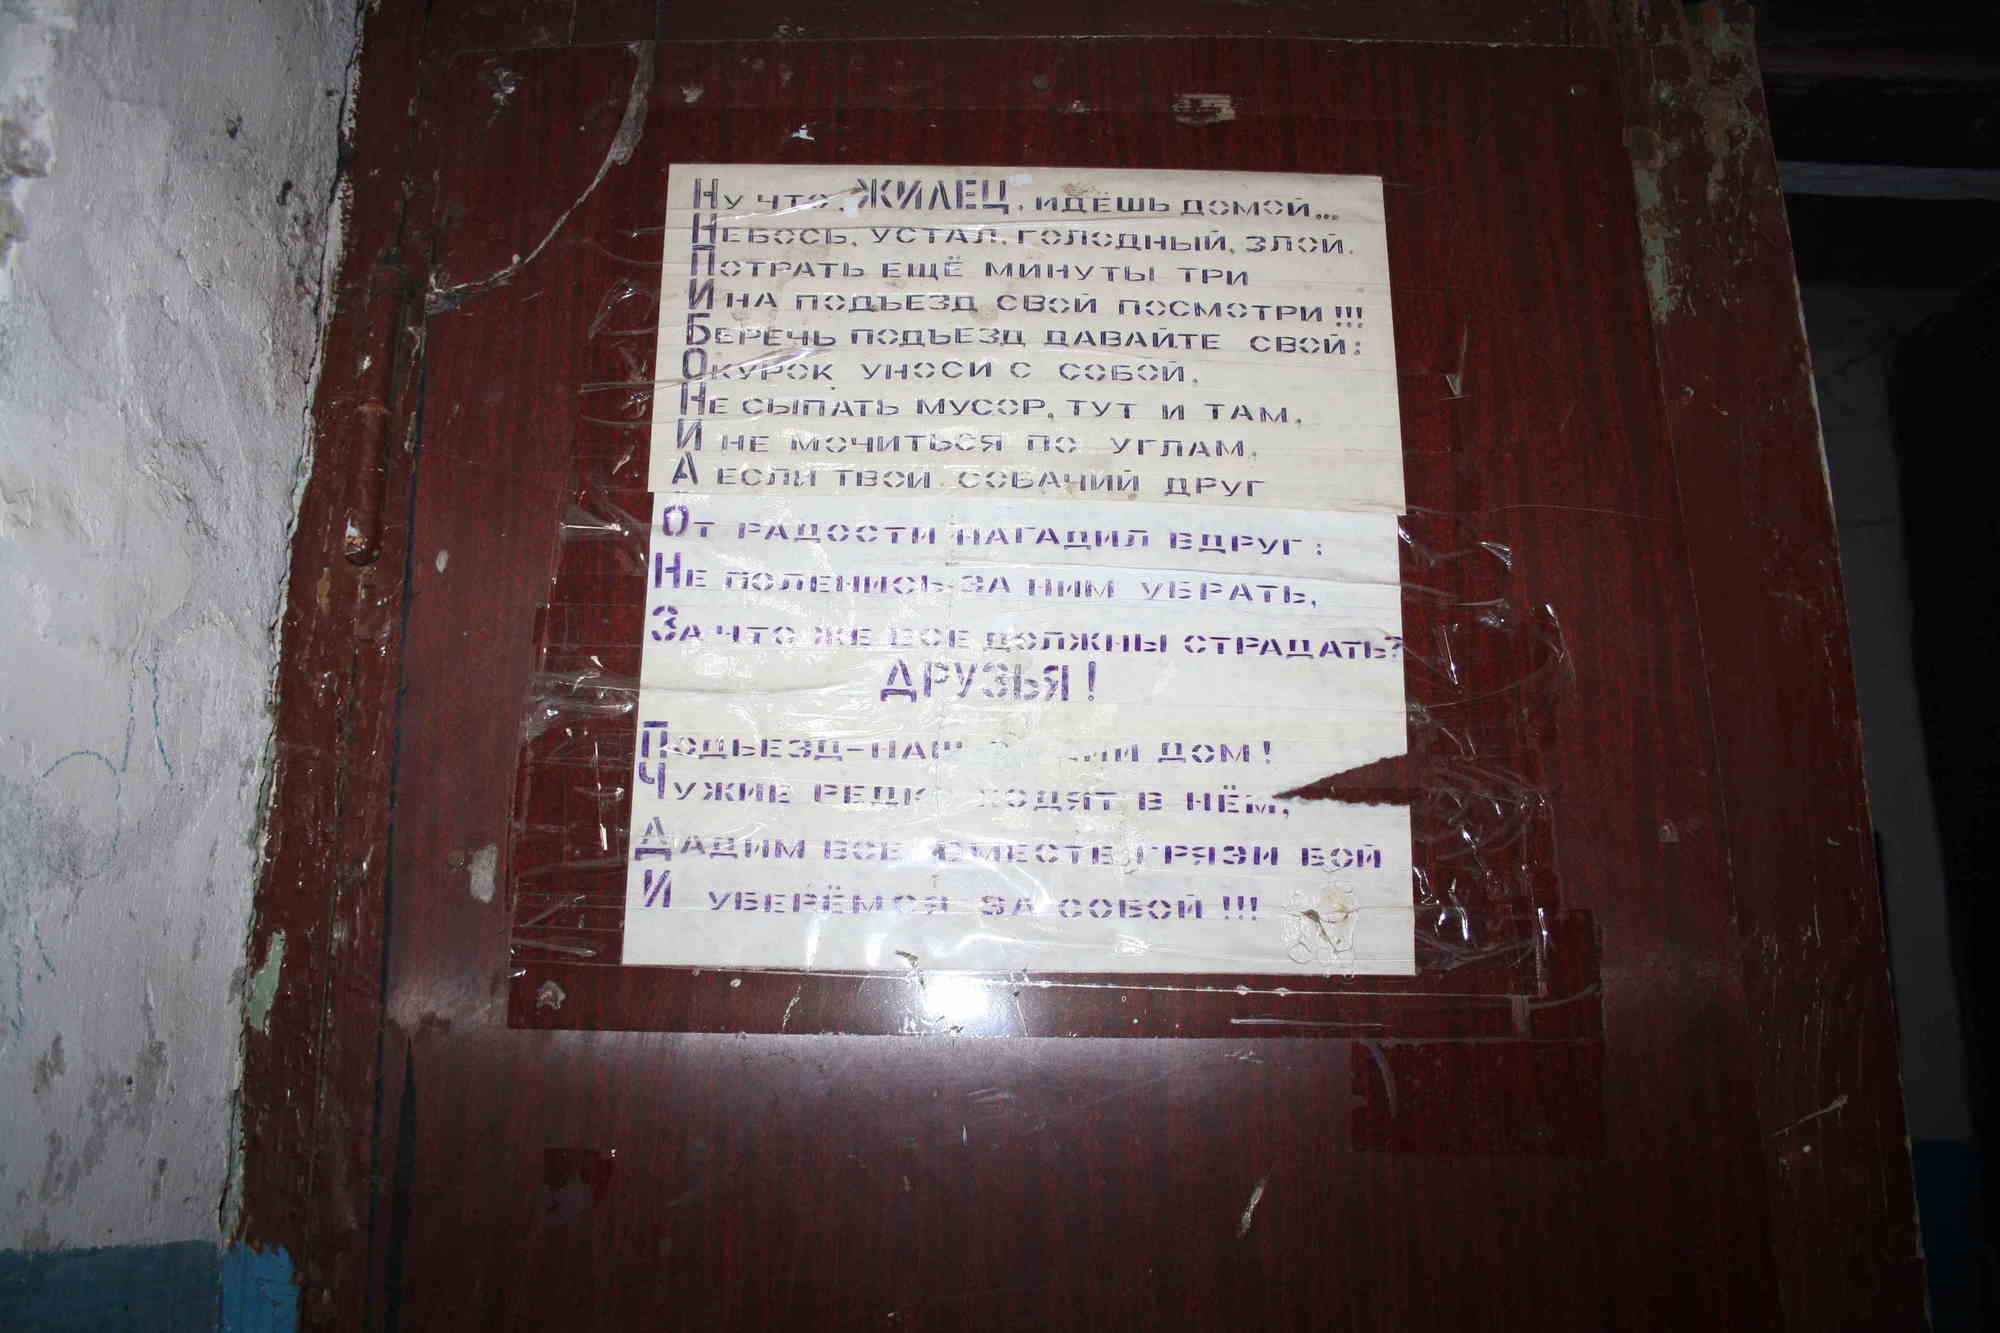 Ну что, ЖИЛЕЦ, идёшь домой...
Небось, устал, голодный, злой.
Потрать ещё минуты три
И на подъезд свой посмотри!!!
Беречь подъезд давайте свой:
Окурок уноси с собой,
Не сыпать мусор, тут и там,
И не мочиться по углам,
А если твой собачий друг
От радости нагадил вдруг:
Не поленись за ним убрать,
За что же все должны страдать?
ДРУЗЬЯ!
Подъезд-наш дом!
Чужие редко ходят в нём,
Дадим все вместе грязи бой
И уберёмся за собой!!!